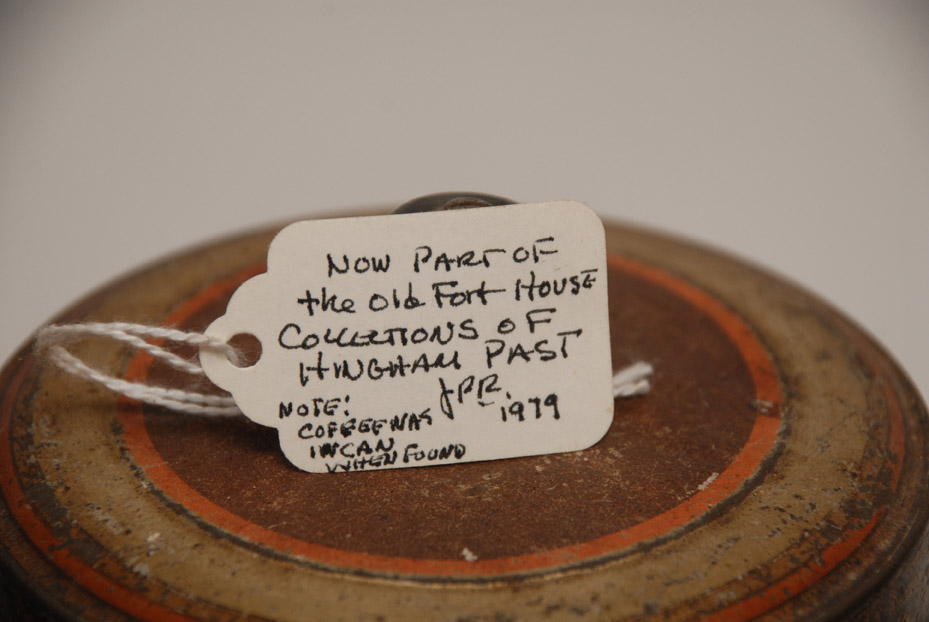 NOW PART OF
the Old Fort HOUSE
COLLECTIONS OF
HINGHAM PAST
JPR.
1979
NOTE!
COFFEE WAS
IN CAN
WHEN FOUND